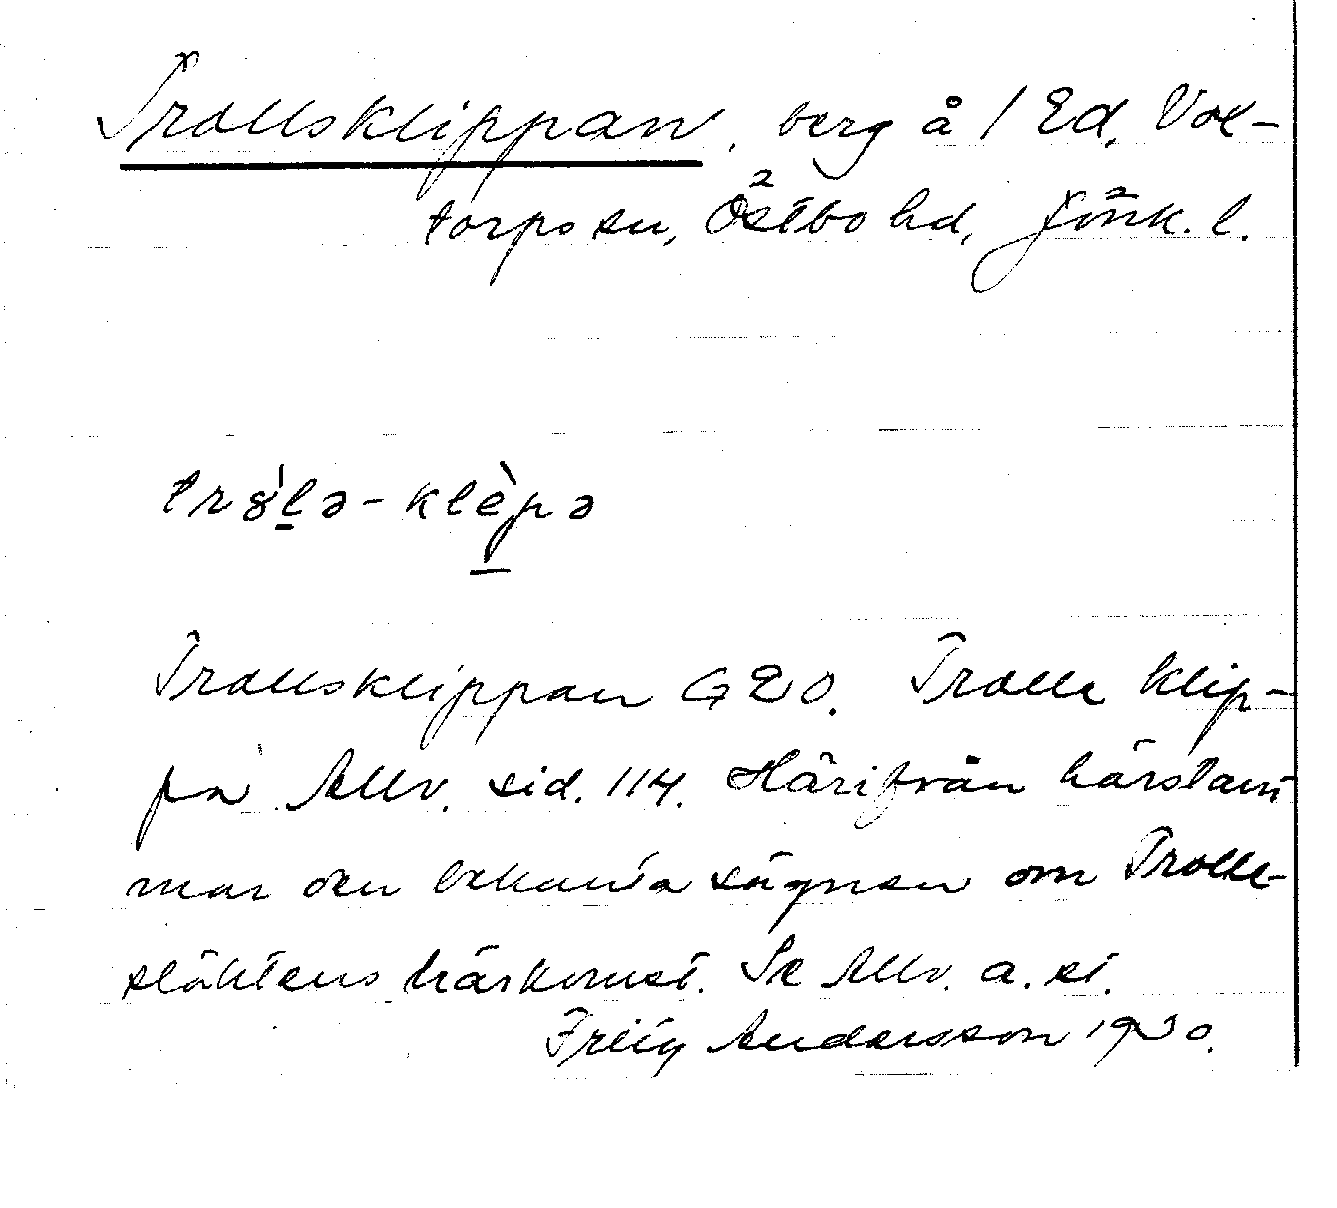 Trollsklippan, berg å 1 Ed, Vol-
torps sn, Östbo hd, Jönk. l.
tr8̀lə-klèpə
Trollsklippan GEO. Trolle klip-
pa Allv. sid. 114. Härifrån härstam-
mar den bekanta sägnen om Trolle-
släktens härkomst. Se Allv. a. st.
Andersson 1930.